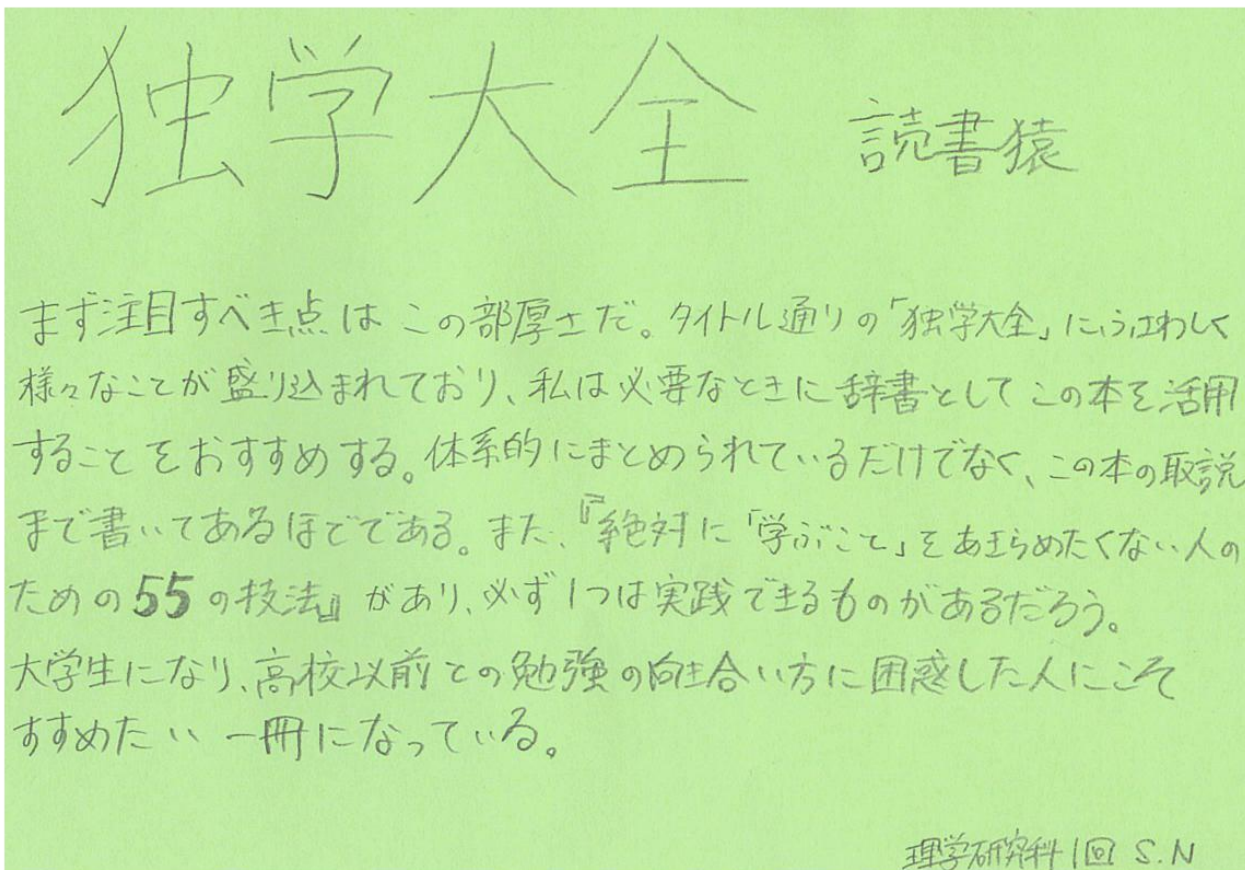 独学大全 読書猿
まず注目すべき点は この部厚さだ。タイトル通りの「独学大全」にふさわしく
様々なことが盛り込まれており、私は必要なときに辞書として この本を活用
することをおすすめする。体系的にまとめられているだけでなく、この本の取説
まで書いてあるほどである。また、『絶対に「学ぶこと」をあきらめたくない人の
ための55の技法』があり、必ず1つは実践できるものがあるだろう。
大学生になり、高校以前との勉強の向き合い方に困惑した人にこそ
すすめたい一冊になっている。
理学研究科1回 S.N